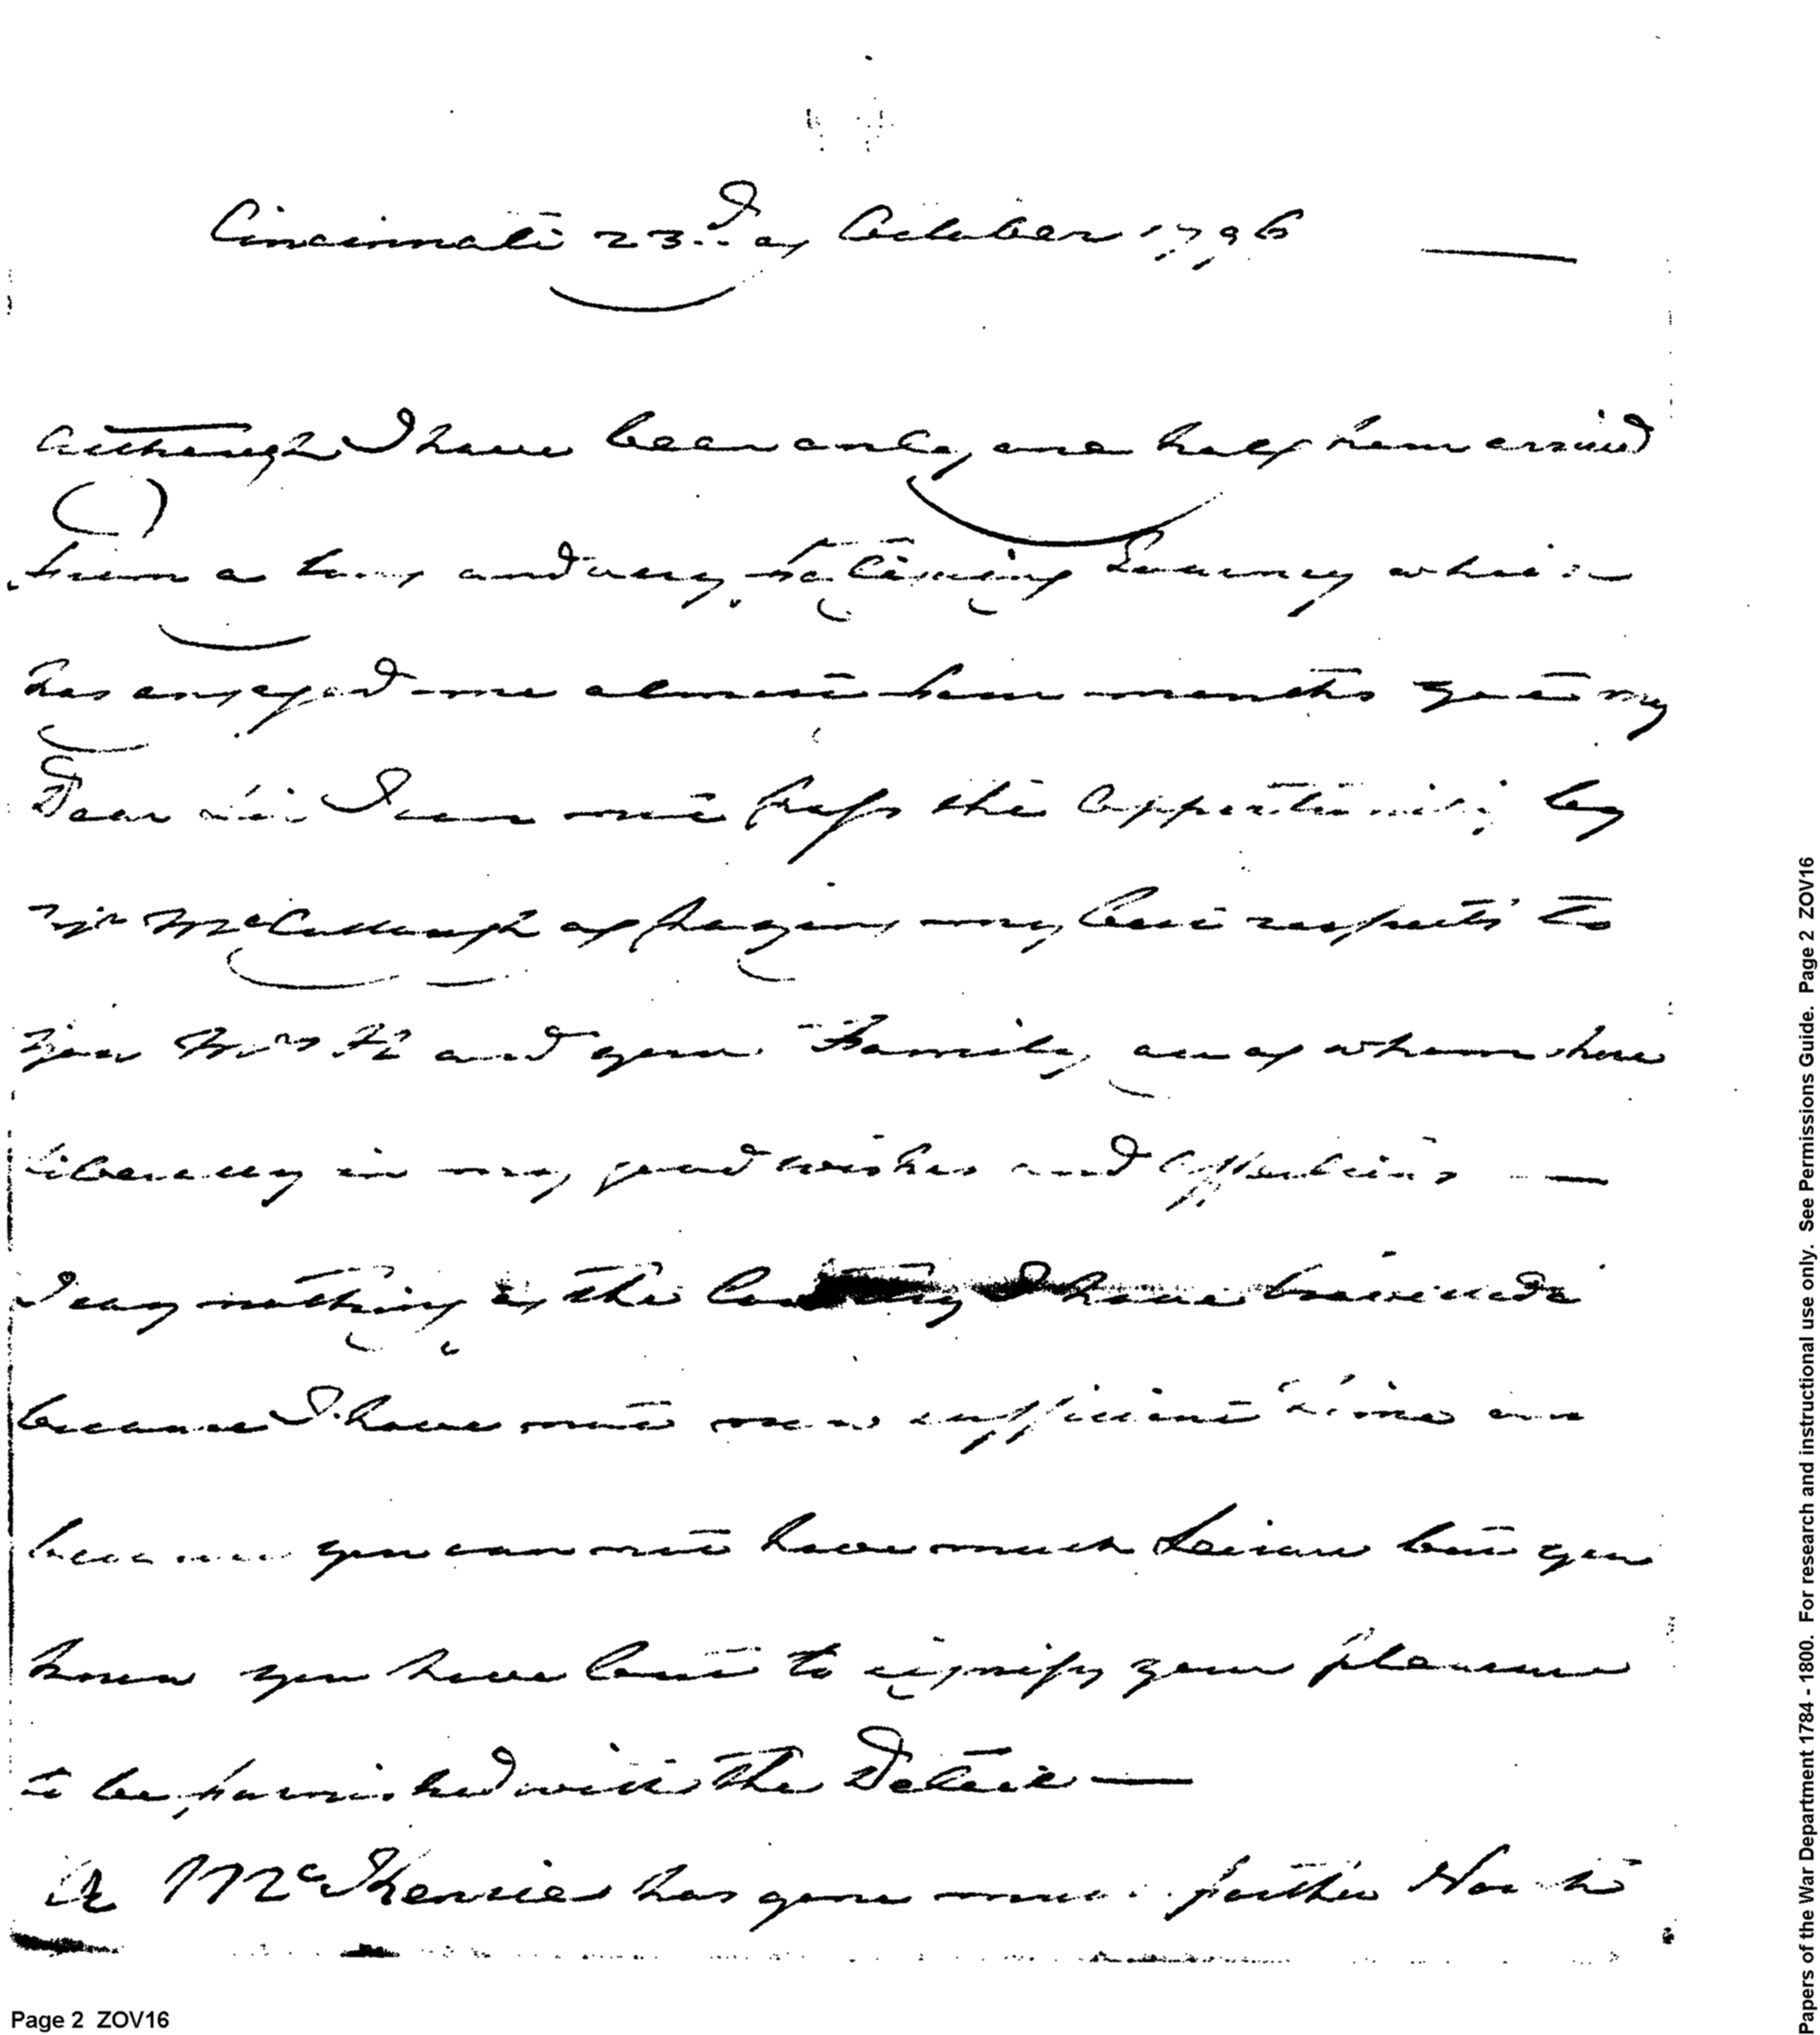 Cincinnati 23.d of October 1796
Although I have been only one half hour arrived
from a long and very fatiguing Journey which
has engaged me almost four months yet my
Dear Sir I can not pass this Opportunity by
Mr McCullough of paying my best respects to
you Mrs H and your Family all of whom share
liberally in my good wishes and affections —
I say nothing of the Country I have
because I have not now sufficient time and
because you can not have much Leisure but you
know you have but to signify your pleasure
to be furnished with the Detail —
A McKenzie has gone much further North
Page 2 ZOV16
Papers of the War Department 1784 - 1800. For research and instructional use only. See Permissions Guide. Page 2 ZOV16